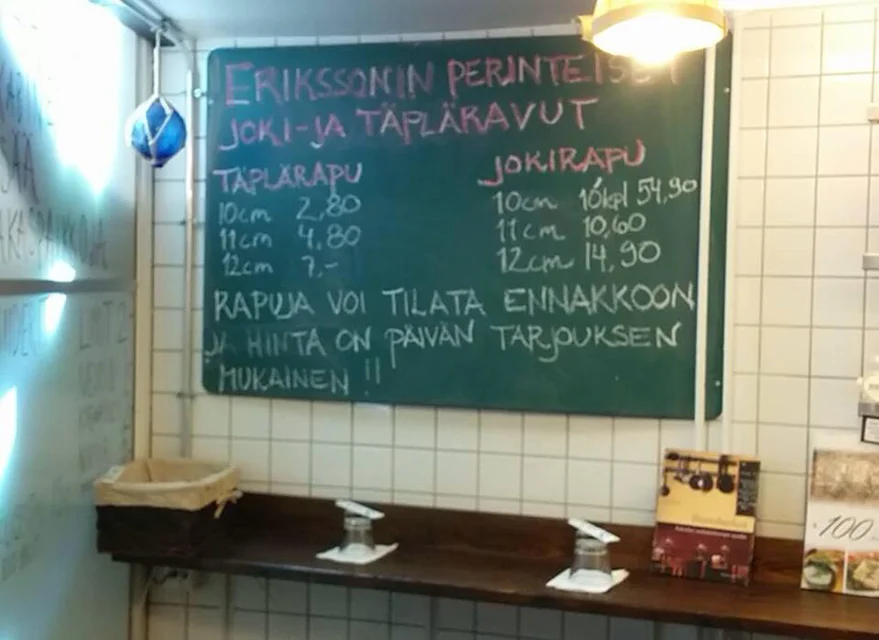 ERIKSSONIN PERINTEISET
JOKI-JA TÄPLÄRAVUT
TÄPLÄRAPU
10cm 2,80
11cm 4,80
12cm 7,-
JOKIRAPU
10cm 10kpl 54,90
11cm 10,60
12cm 14,90
RAPUJA VOI TILATA ENNAKKOON
JA HINTA ON PÄIVÄN TARJOUKSEN
MUKAINEN !!
100